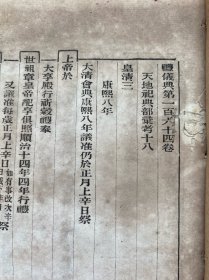 禮儀典第一百六十四卷
天地祀典部彙考十八
皇清二
康熙八年
大清會典康熙八年議准仍於正月上辛日祭
上帝於
大享殿行祈穀禮奉
世祖章皇帝配享俱照順治十四年四年行禮
又議准每歲正月上辛日如有事改次辛祭